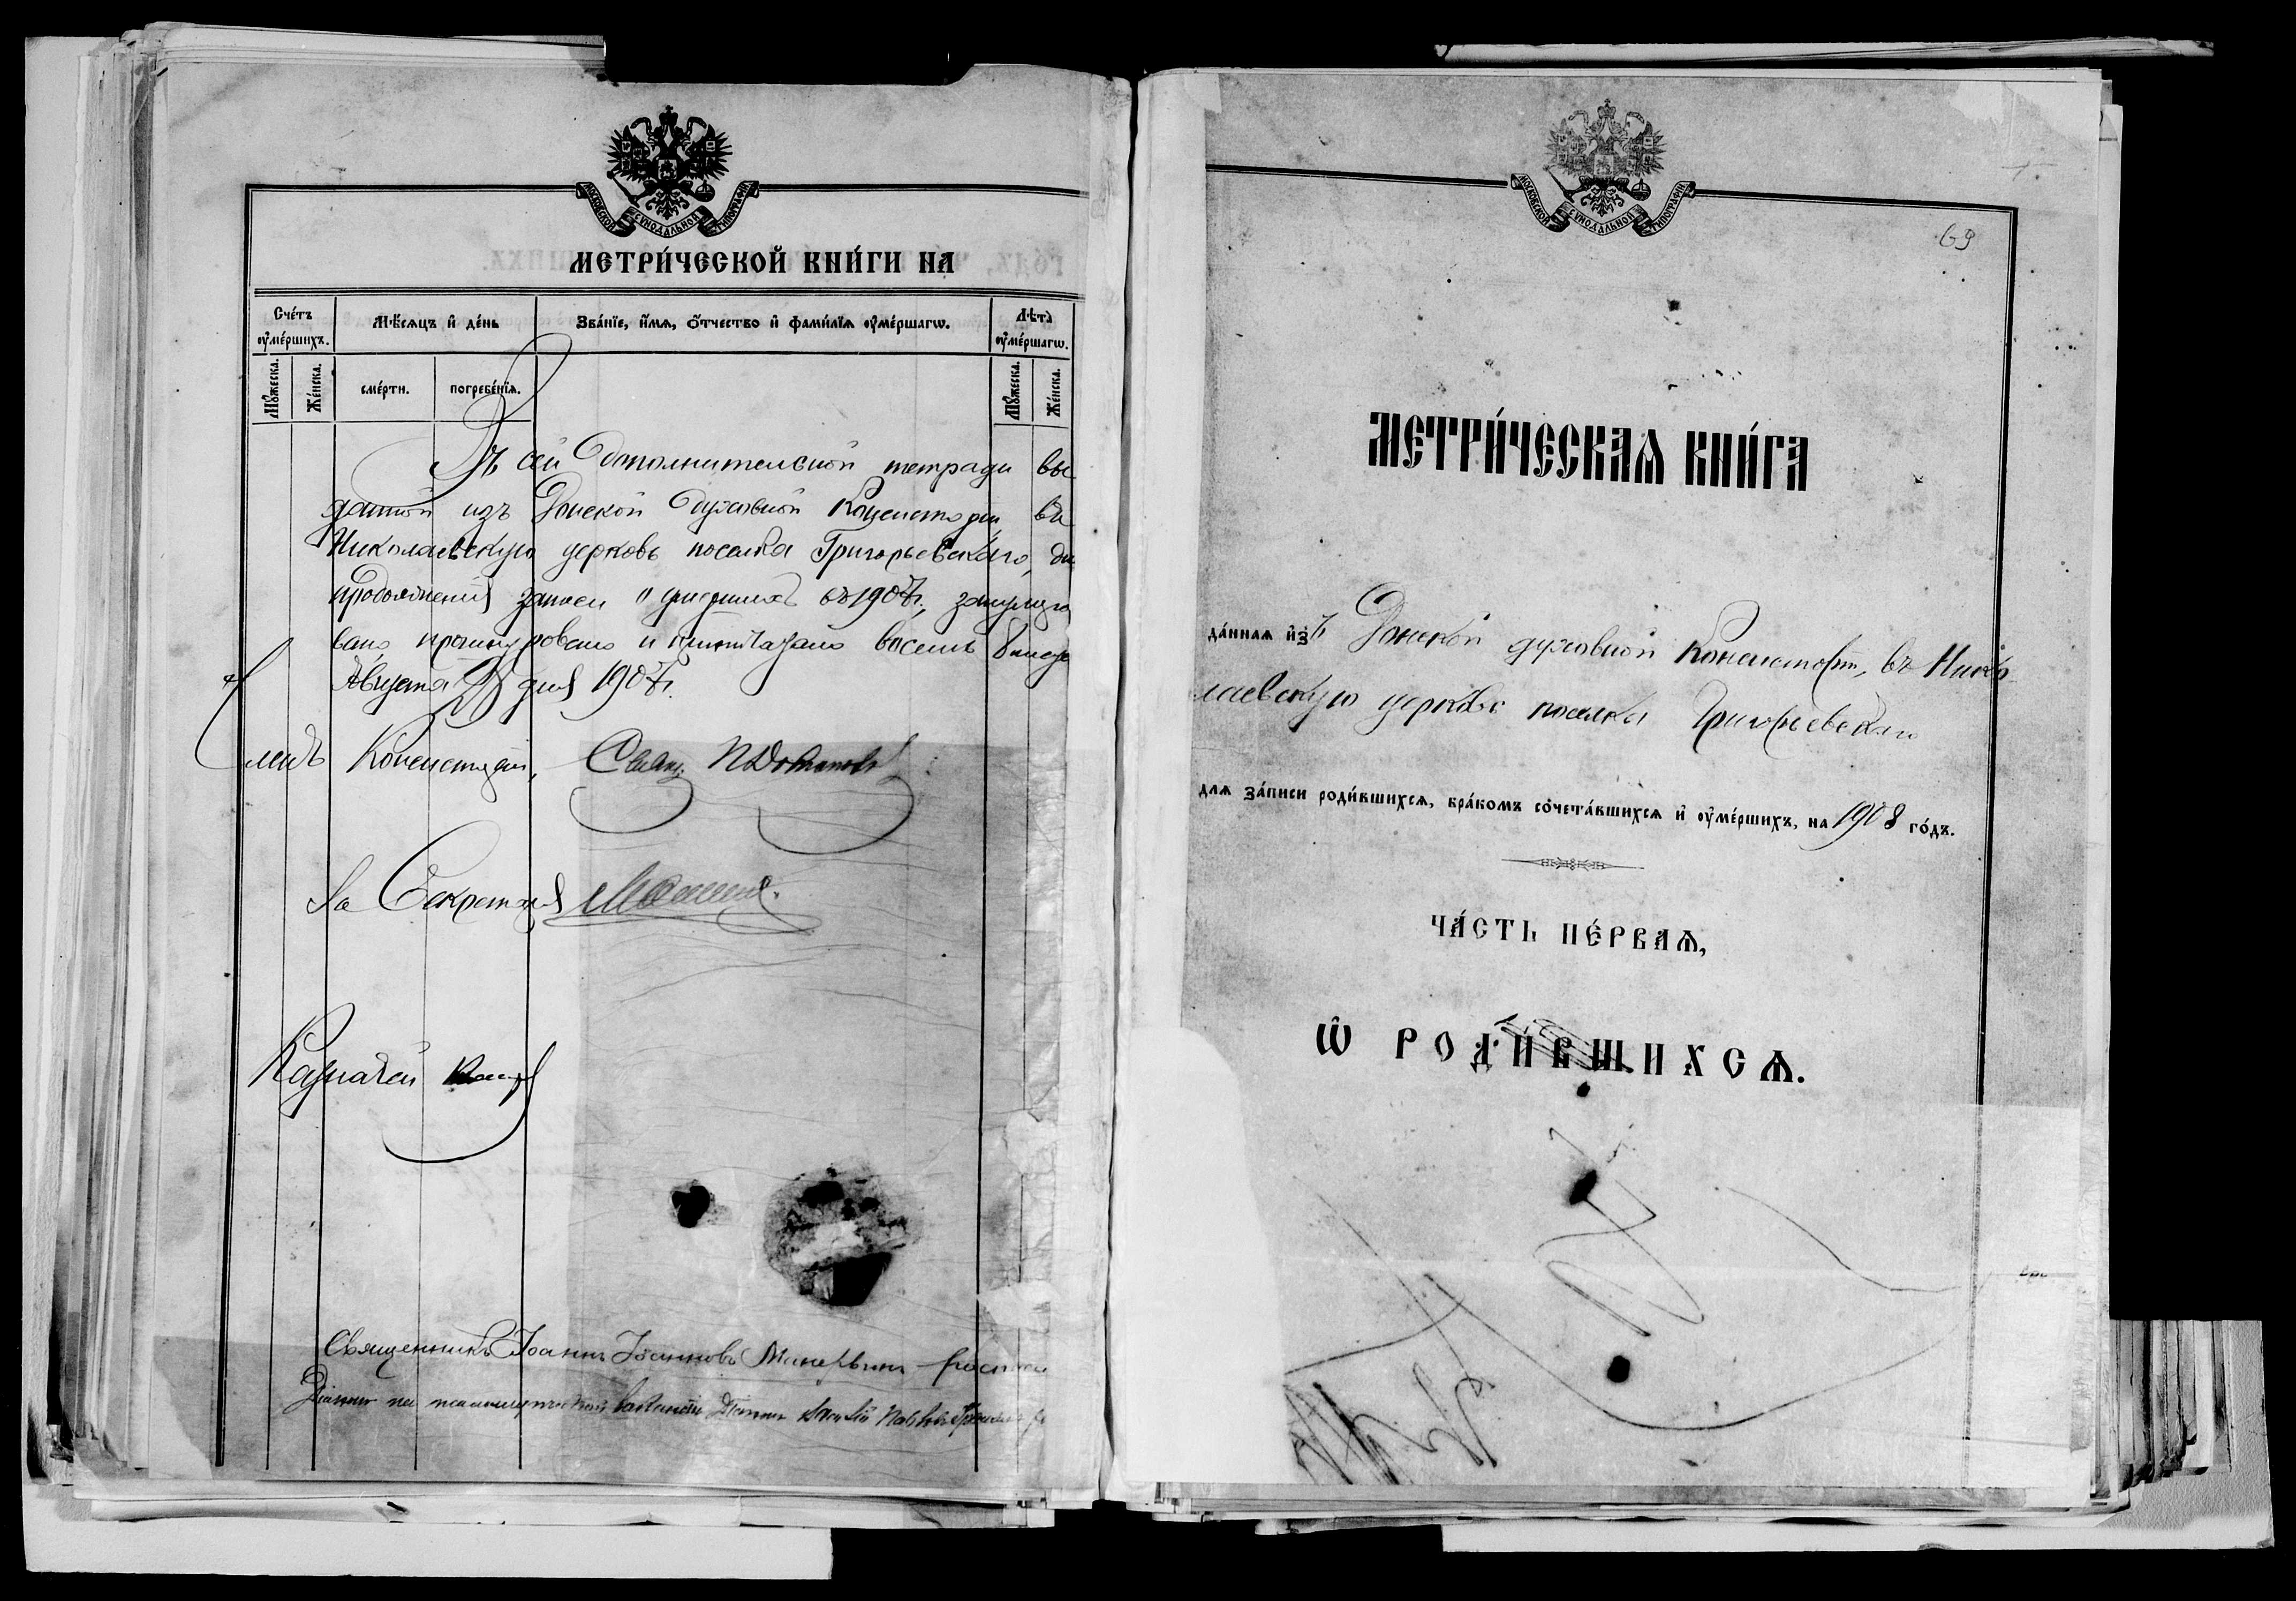 МОСКОВСКОЙ СѴНОДАЛЬНОЙ ТИПОГРАФІИ
МЕТРИ́ЧЕСКОЙ КНИ́ГИ НА
Сче́тъ ᲂу҆ме́ршихъ.
Мѣ́сяцъ и҆ де́нь
Зва́нїе, и҆́мѧ, ѻ҆́тчество и҆ фами́лїѧ ᲂу҆ме́ршагѡ.
Лѣ́та ᲂу҆ме́ршагѡ.
Мꙋ́жеска.
Же́нска.
сме́рти.
погребе́нїѧ.
Мꙋ́жеска.
Же́нска.
Въ сей дополнительной тетради вы
данной изъ Донской Духовной Консисторіи, въ
Николаевскую церковь поселка Григорьевскаго, для
продолженія записи о умершихъ въ 1907 г.,
прошнуровано и припечатано восемь 8
Августа 28 дня 1907 г.
Членъ Консисторіи, Свящ.
За Секретаря
Казначей
Священникъ Іоаннъ Іоанновъ Минервин
Діаконъ на псаломщической вакансіи Діаконъ
МОСКОВСКОЙ СѴНОДАЛЬНОЙ ТИПОГРАФІИ
69
МЕТРИ́ЧЕСКАѦ КНИ́ГА
да́ннаѧ и҆зъ Донской духовной Консисторіи, въ Нико
лаевскую церковь поселка Григорьевскаго
длѧ за́писи роди́вшихсѧ, бра́комъ сочета́вшихсѧ и҆ ᲂу҆ме́ршихъ, на 1908 го́дъ.
ЧА́СТЬ ПЕ́РВАѦ,
Ѽ РОДИ́ВШИХСѦ.